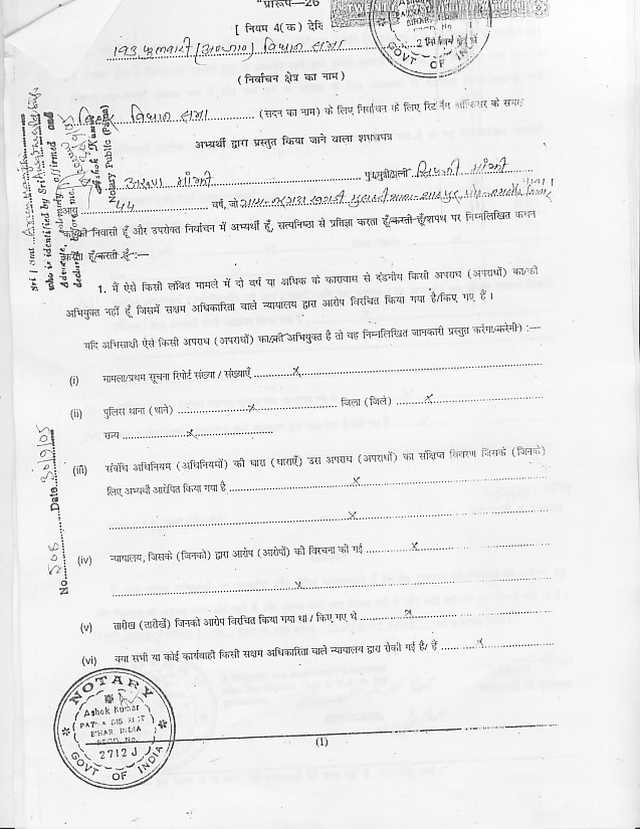 "प्रारूप—26
[ नियम 4(क) देखि
193 फुलवारी (अ०जा०) विधान सभा
(निर्वाचन क्षेत्र का नाम)
विधान सभा (सदन का नाम) के लिए निर्वाचन के लिए रिटर्निंग ऑफिसर के समक्ष
अभ्यर्थी द्वारा प्रस्तुत किया जाने वाला शपथपत्र
अरुण मांझी पुत्र/पुत्री/पत्नी मांझी
44 वर्ष, जो
का/की निवासी हूँ और उपरोक्त निर्वाचन में अभ्यर्थी हूँ, सत्यनिष्ठा से प्रतिज्ञा करता हूँ/करती हूँ/शपथ पर निम्नलिखित कथन
करता हूँ/करती हूँ :—
1. मैं ऐसे किसी लंबित मामले में दो वर्ष या अधिक के कारावास से दंडनीय किसी अपराध (अपराधों) का/की
अभियुक्त नहीं हूँ जिसमें सक्षम अधिकारिता वाले न्यायालय द्वारा आरोप विरचित किया गया है/किए गए हैं ।
यदि अभिसाक्षी ऐसे किसी अपराध (अपराधों) का/की अभियुक्त है तो वह निम्नलिखित जानकारी प्रस्तुत करेगा/करेगी) :—
(i) मामला/प्रथम सूचना रिपोर्ट संख्या / संख्याएँ ..........x..........
(ii) पुलिस थाना (थाने) ..........x.......... जिला (जिले) ..........x..........
राज्य ..........x..........
(iii) संबंधि अधिनियम (अधिनियमों) की धारा (धाराएँ) उस अपराध (अपराधों) का संक्षिप्त विवरण जिसके (जिनके)
लिए अभ्यर्थी आरोपित किया गया है ..........x..........
..........x..........
(iv) न्यायालय, जिसके (जिनको) द्वारा आरोप (आरोपों) की विरचना की गई ..........x..........
..........x..........
(v) तारीख (तारीखें) जिनको आरोप विरचित किया गया था / किए गए थे ..........x..........
(vi) क्या सभी या कोई कार्यवाही किसी सक्षम अधिकारिता वाले न्यायालय द्वारा रोकी गई है/ हैं ..........x..........
(1)
who is identified by Sri
Advocate, solemnly affirmed and
declared before me.
Ashok Kumar
Notary Public (Patna)
No. 508 Date 30/9/05
NOTARY
Ashok Kumar
PATNA DISTRICT
BIHAR INDIA
REGD No.
2712 J
GOVT OF INDIA
GOVT OF INDIA